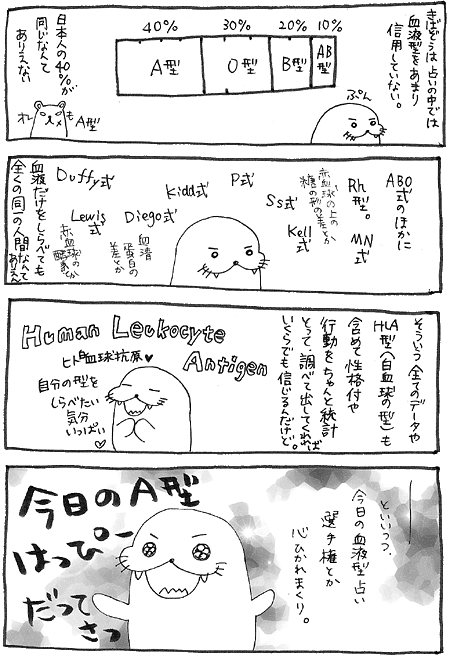 きばぞうは占いの中では
血液型をあまり
信用していない。
40% 30% 20% 10%
A型 O型 B型 AB型
ぷん
日本人の40%が
同じなんて
ありえない
オレ も A型
ABO
式のほかに
Rh
型。
MN
式
赤血球の上の
糖の形の差とか
Ss式
Kell
式
P式
Kidd式
Diego式
血清
蛋白の
差とか
Duffy式
Lewis
式
赤血球の
酵素とか
血液だけをしらべても
全くの同一の人間なんて
ありえん
そういう全てのデータや
HLA
型(白血球の型)も
含めて性格付や
行動をちゃんと統計
とって、調べて出してくれれば
いくらでも信じるんだけど。
Human Leukocyte
Antigen
ヒト白血球抗原♥
自分の型を
しらべたい
気分
いっぱい
♡
といいつつ、
今日の血液型占い
選手権とか
心ひかれまくり。
今日のA型
はっぴー
だって
さっ